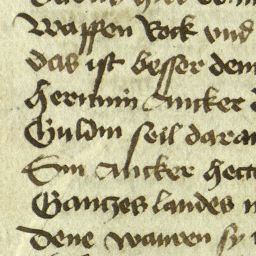 Wappen Rock vnd
das ist besser dem
herinnin Ancker
Guldin seil daran
Sin Ancker hett
Gantzes landes
Dene waurent sy